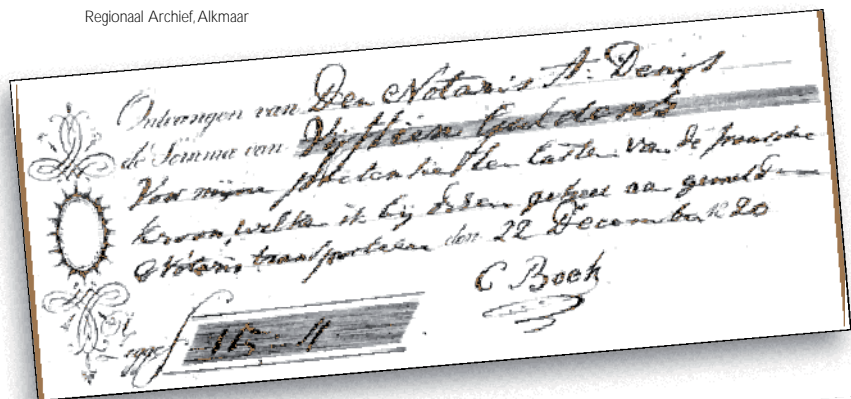 Regionaal Archief, Alkmaar
Ontvangen van Den Notaris A. Denijs
de Somma van Vijftien Guldens
Voor mijne pretentie ten laste van de fransche
kroon, welke ik bij dezen geheel aan gemelde
Notaris transporteere den 22 December 1820
C Boek
zegge f 15 - "